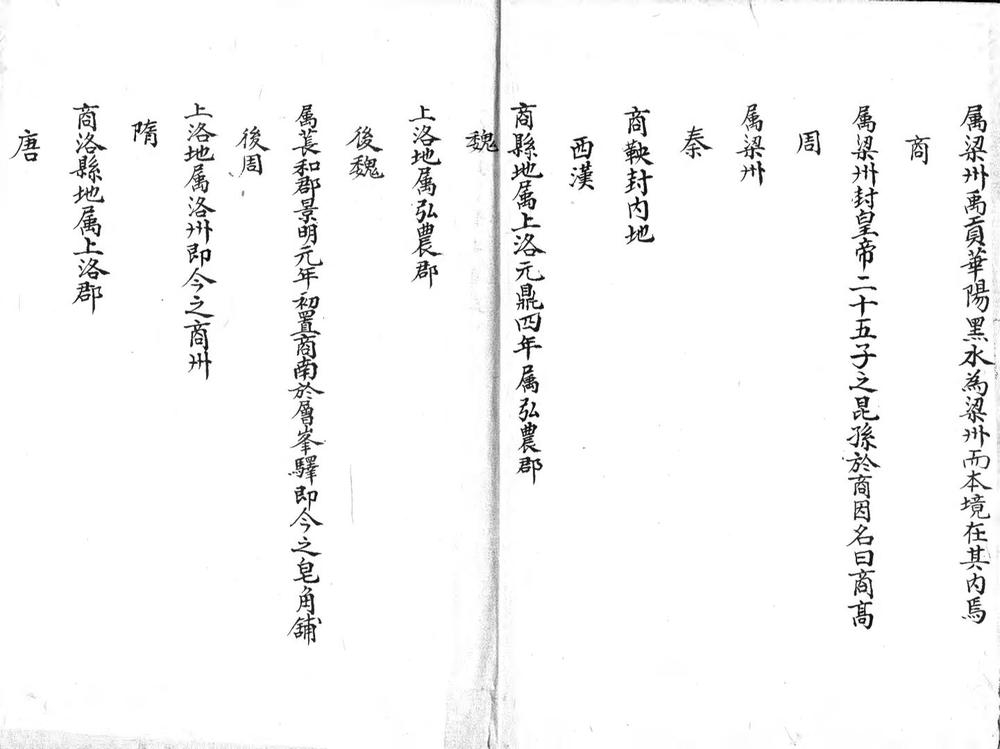 属梁州禹貢華陽黑水為梁州而本境在其內焉
商
属梁州封皇帝二十五子之昆孫於商因名曰商高
周
属梁州
秦
商鞅封内地
西漢
商縣地属上洛元鼎四年属弘農郡
魏
上洛地属弘農郡
後魏
属萇和郡景明元年初置商南於層峯驛即今之皂角舖
後周
上洛地属洛州即今之商州
隋
商洛縣地属上洛郡
唐